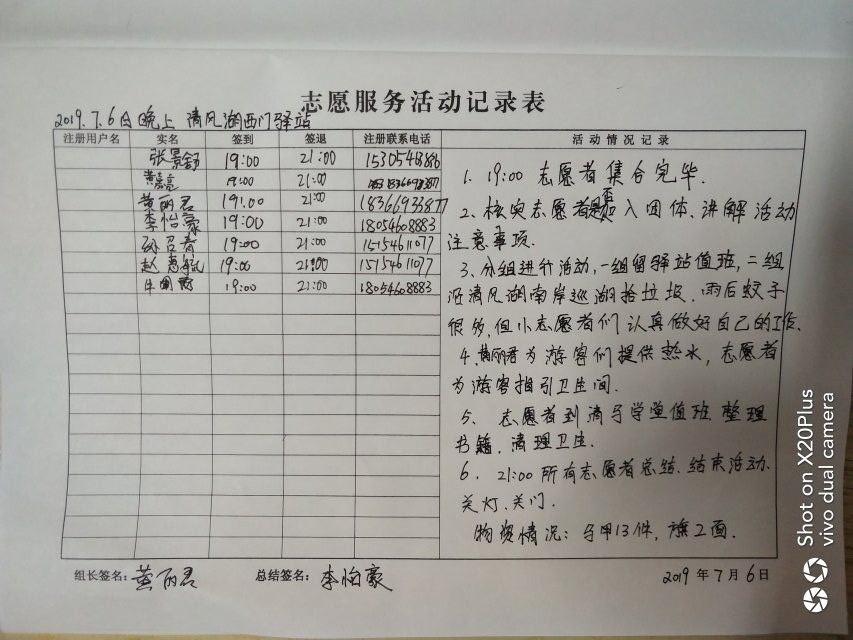 志愿服务活动记录表
2019.7.6日晚上 清风湖西门驿站
注册用户名 实名 签到 签退 注册联系电话 活动情况记录
张景舒 19:00 21:00
19:00 21:00
黄丽君 19:00 21:00 18366933877
李怡豪 19:00 21:00 18054608883
孙召育 19:00 21:00 15154611077
赵 19:00 21:00 15154611077
牛 19:00 21:00 18054608883
1. 19:00 志愿者集合完毕.
2、核实志愿者是否加入团体、讲解活动
注意事项.
3、分组进行活动,一组留驿站值班,二组
沿清风湖南岸巡湖捡垃圾.雨后蚊子
很多,但小志愿者们认真做好自己的工作、
4、黄丽君为游客们提供热水,志愿者
为游客指引卫生间.
5、志愿者到清子学堂值班 整理
书籍、清理卫生.
6. 21:00所有志愿者总结、结束活动、
关灯、关门.
物资情况:马甲13件,旗2面.
组长签名:黄丽君 总结签名:李怡豪 2019年7月6日
Shot on X20Plus
vivo dual camera